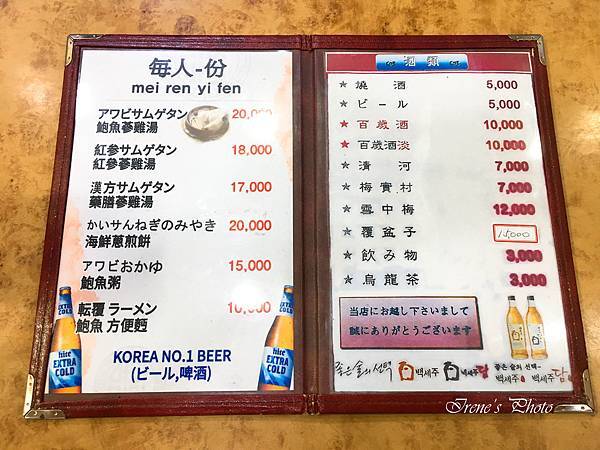 每人-份
mei ren yi fen
アワビサムゲタン 20,000
鮑魚蔘雞湯
紅参サムゲタン 18,000
紅參蔘雞湯
漢方サムゲタン 17,000
藥膳蔘雞湯
かいサんねぎのみやき 20,000
海鮮蔥煎餅
アワビおかゆ 15,000
鮑魚粥
転覆 ラーメン 10,000
鮑魚 方便麵
KOREA NO.1 BEER
(ビール,啤酒)
hite
EXTRA
COLD
hite
EXTRA
COLD
酒類
★ 燒酒 5,000
★ ビール 5,000
★ 百歳酒 10,000
★ 百歳酒淡 10,000
★ 清河 7,000
★ 梅實村 7,000
★ 雪中梅 12,000
★ 覆盆子 15,000
★ 飲み物 3,000
★ 烏龍茶 3,000
当店にお越し下さいまして
誠にありがとうございます
좋은술의선택 백세주 백세주담
좋은 술의 선택-
백세주 백세주담
Irene's Photo